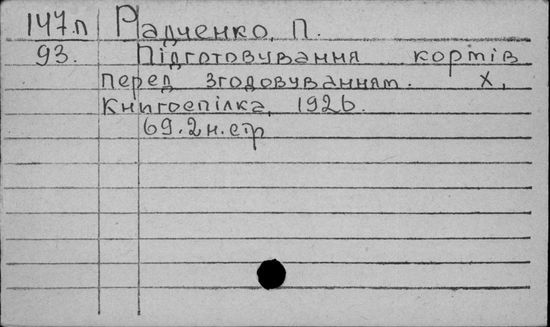 147.п Радченко, П.
93. Підготовування кормів
перед згодовуванням. Х,
Книгоспілка, 1926.
69.2 н. стр